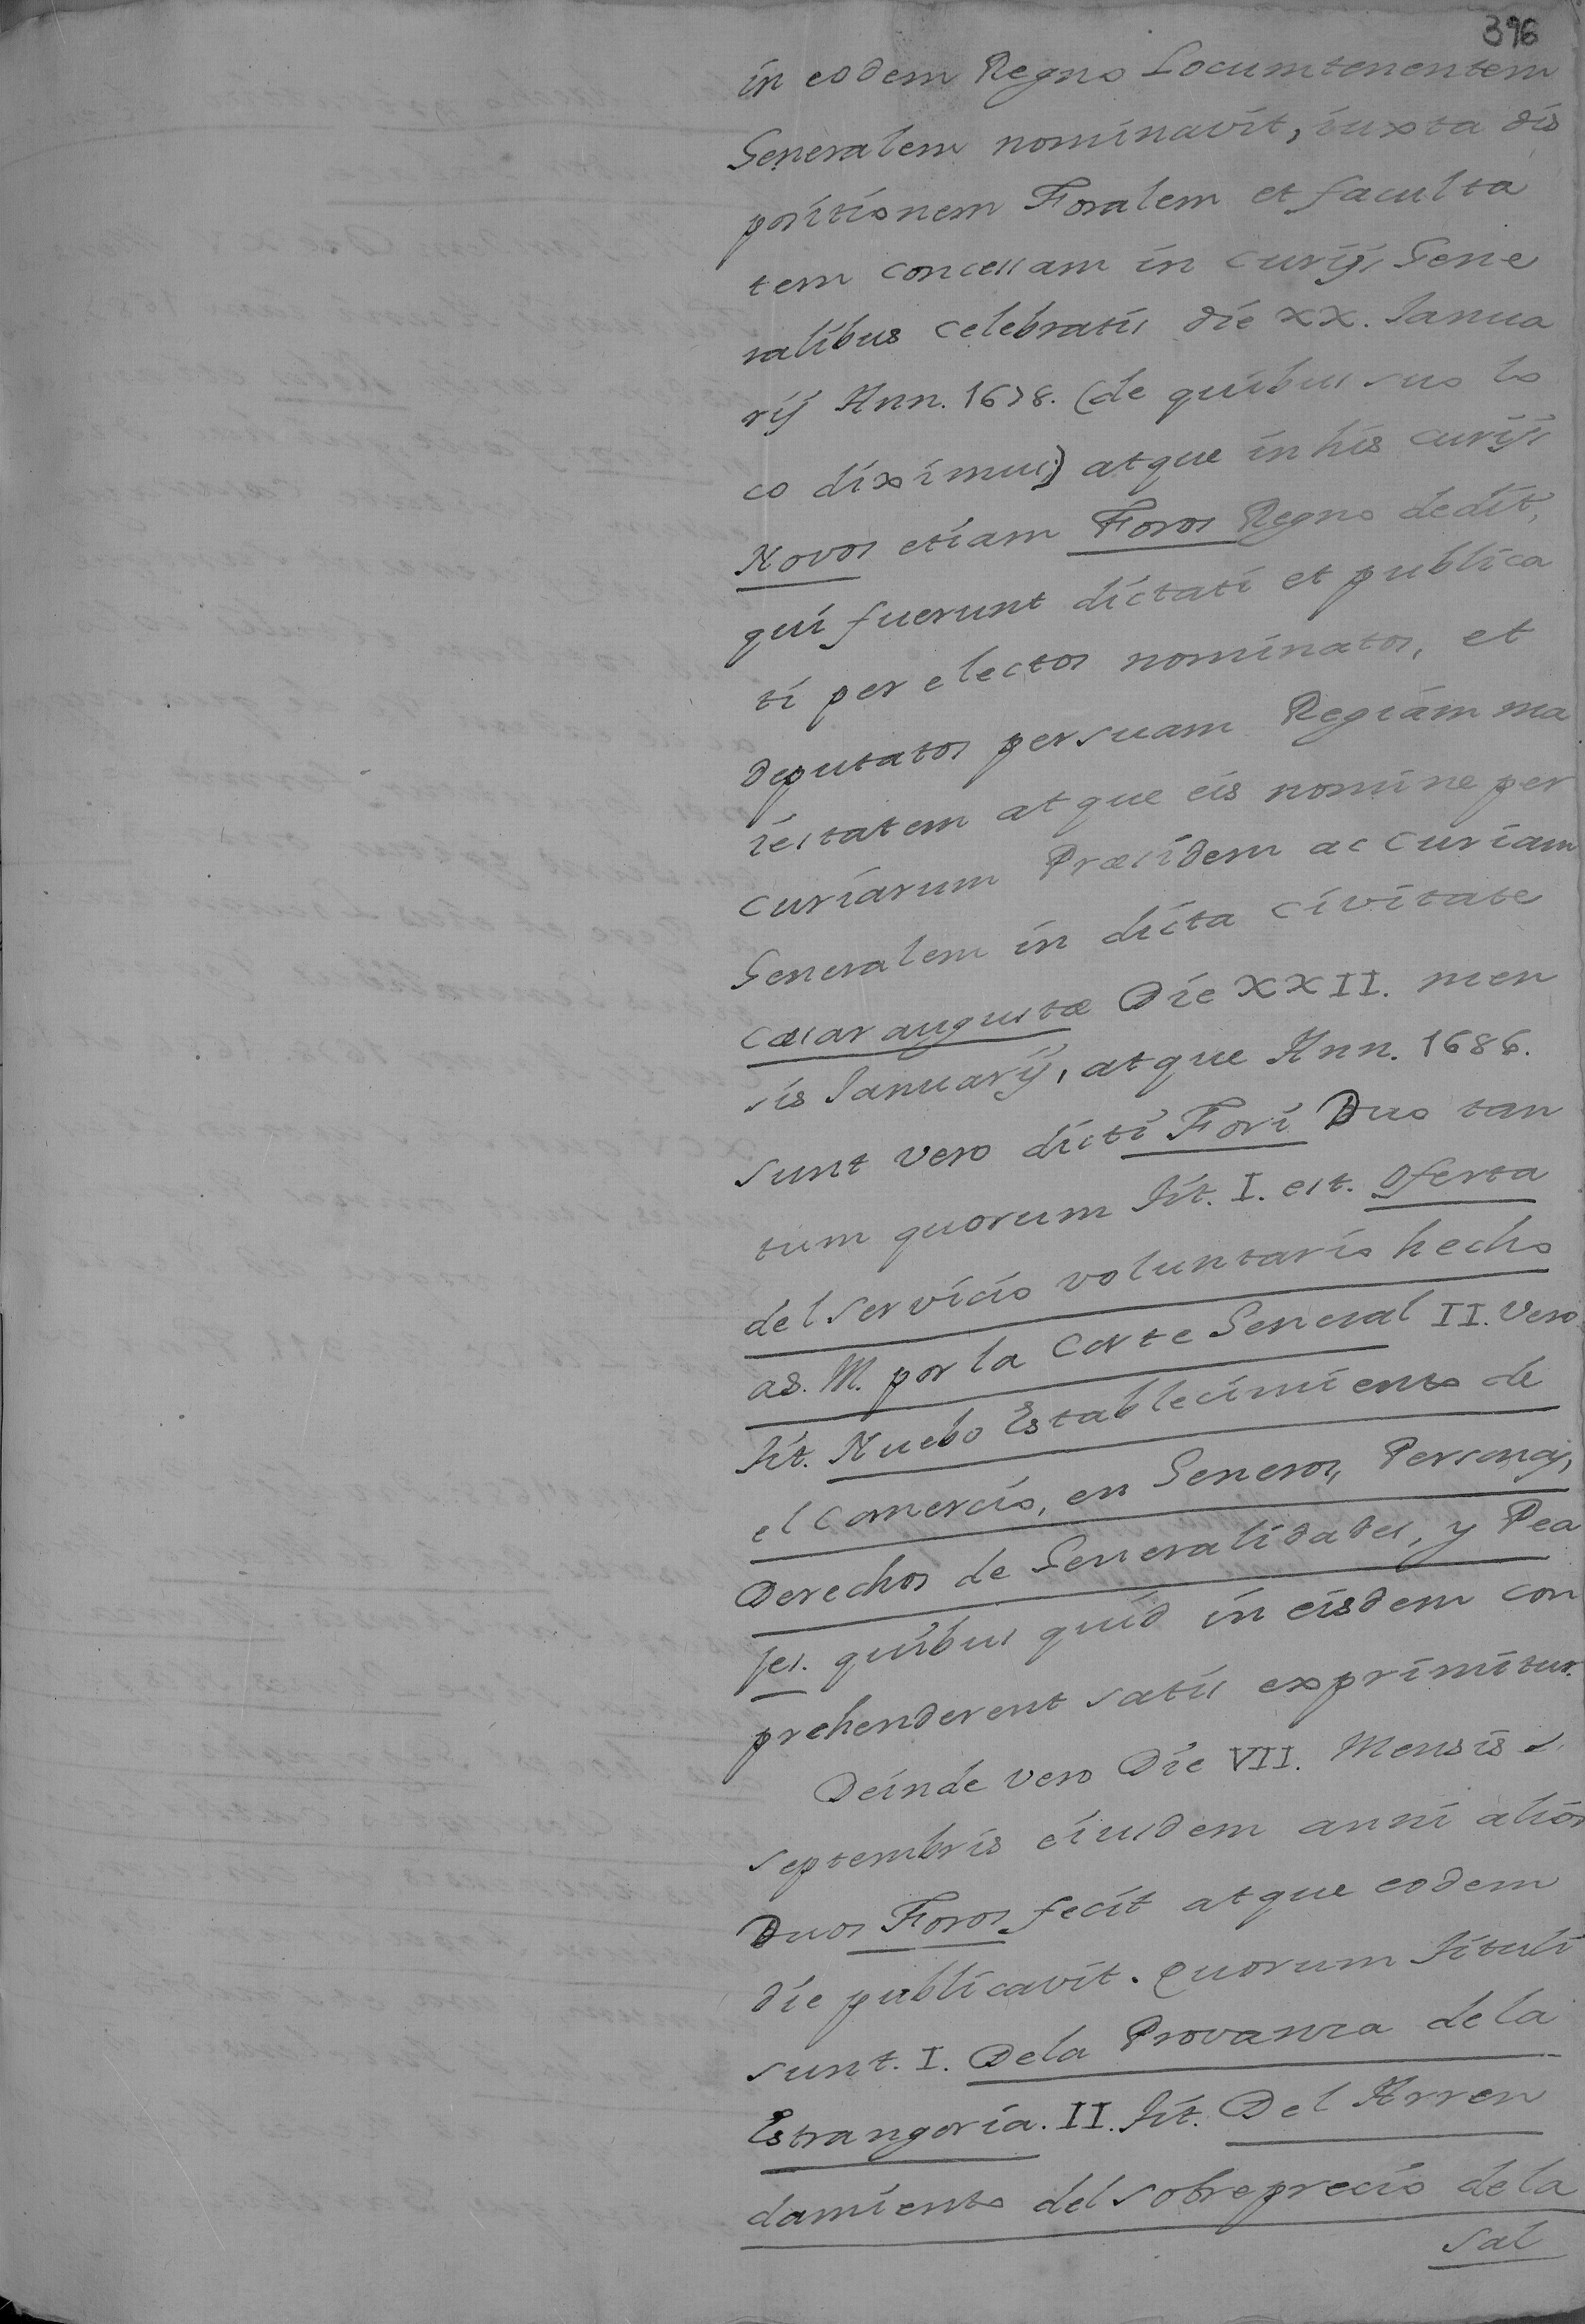 396
in eodem Regno Locumtenentem
Generalem nominavit, iuxta dis
positionem Foralem et faculta
tem concessam in curijs Gene
ralibus celebratis die XX. Ianua
rij Ann. 1678. (de quibus suo lo
co diximus) atque in his curijs
Novos etiam Foros Regno dedit,
qui fuerunt dictati et publica
ti per electos nominatos, et
deputatos per suam Regiam ma
iestatem atque eis nomine per
curiarum Præsidem ac curiam
Generalem in dicta civitate
cæsar augustæ Die XXII. men
sis Ianuarij, atque Ann. 1686.
sunt vero dicti Fori Duo tan
tum quorum tit. I. est. oferta
del servicio voluntario hecho
a S. M. por la Corte General II. vero
tit. Nuebo Establecimiento de
el Comercio, en Generos, Personas,
Derechos de Generalidades, y Pea
jes. quibus quid in eisdem con
prehenderent satis exprimitur.
Deinde vero Die VII. Mensis s.
septembris eiusdem anni alios
Duos Foros fecit atque eodem
die publicavit. quorum tituli
sunt. I. De la Provanza de la
Estrangeria. II. tit. Del Arren
damiento del sobreprecio de la
sal